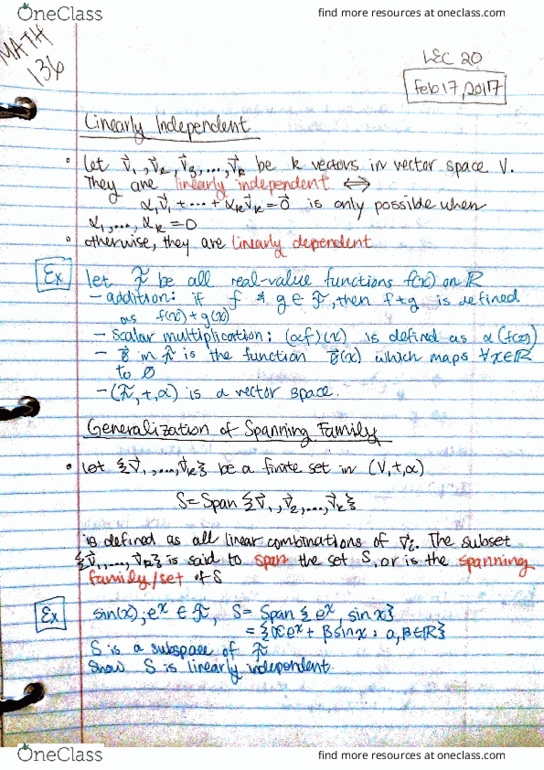 OneClass
find more resources at oneclass.com
MATH
136
LEC 20
Feb 17, 2017
Linearly Independent
• Let v⃗₁, v⃗₂, v⃗₃, ..., v⃗ₖ be k vectors in vector space V.
They are linearly independent ⟺
α₁v⃗₁ + ... + αₖv⃗ₖ = 0⃗ is only possible when
α₁, ..., αₖ = 0
• otherwise, they are linearly dependent
Ex let F be all real-value functions f(x) on ℝ
- addition: if f & g ∈ F, then f+g is defined
as f(x) + g(x)
- Scalar multiplication: (αf)(x) is defined as α(f(x))
- 0⃗ in F is the function 0⃗(x) which maps ∀x∈ℝ
to 0
- (F, +, α) is a vector space.
Generalization of Spanning Family
• Let {v⃗₁, ..., v⃗ₖ} be a finite set in (V, +, α)
S = Span {v⃗₁, v⃗₂, ..., v⃗ₖ}
is defined as all linear combinations of v⃗ᵢ. The subset
{v⃗₁, ..., v⃗ₖ} is said to span the set S, or is the spanning
family/set of S
Ex sin(x), eˣ ∈ F, S = Span {eˣ, sinx}
= {αeˣ + βsinx : α, β∈ℝ}
S is a subspace of F
Show S is linearly independent
OneClass
find more resources at oneclass.com